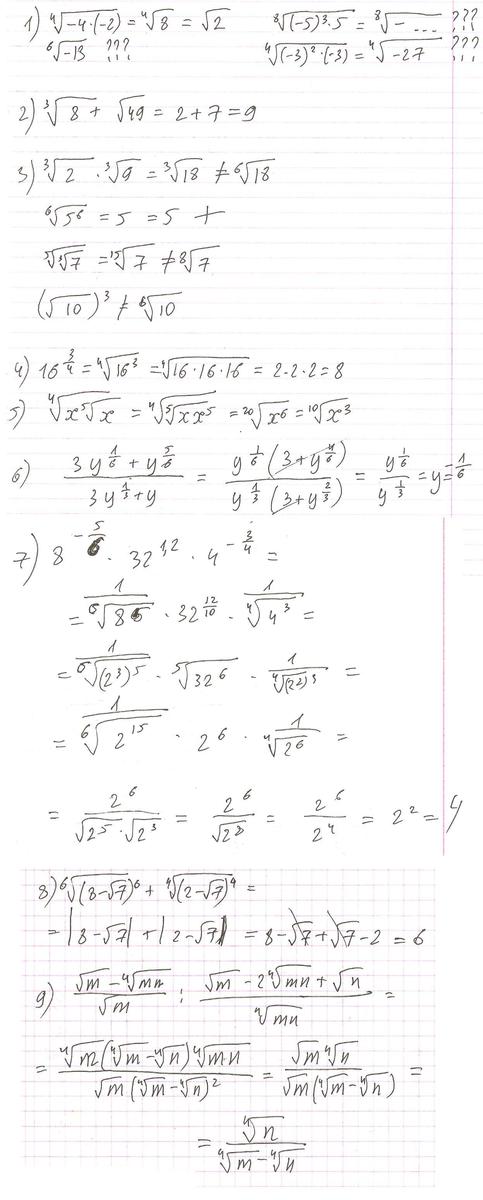 1) ⁴√(-4·(-2)) = ⁴√8 = √2    ⁸√((-5)³·5) = ⁸√(- ...) ???
⁶√-13 ???    ⁴√((-3)²·(-3)) = ⁴√-27 ???
2) ³√8 + √49 = 2+7=9
3) ³√2 · ³√9 = ³√18 ≠ ⁶√18
⁶√5⁶ = 5 = 5 +
⁵√³√7 = ¹⁵√7 ≠ ⁸√7
(√10)³ ≠ ⁶√10
4) 16^(3/4) = ⁴√16³ = ⁴√(16·16·16) = 2·2·2=8
5) ⁴√(x ⁵√x) = ⁴√(⁵√(x x⁵)) = ²⁰√x⁶ = ¹⁰√x³
6) (3y^(1/6) + y^(5/6))/(3y^(1/3) + y) = (y^(1/6) (3+y^(4/6)))/(y^(1/3) (3+y^(2/3))) = y^(1/6)/y^(1/3) = y^(-1/6)
7) 8^(-5/6) · 32^(1,2) · 4^(-3/4) =
= 1/⁶√8⁵ · 32^(12/10) · 1/⁴√4³ =
= 1/⁶√(2³)⁵ · ⁵√32⁶ · 1/⁴√(2²)³ =
= 1/⁶√2¹⁵ · 2⁶ · 1/⁴√2⁶ =
= 2⁶/(√2⁵·√2³) = 2⁶/√2⁸ = 2⁶/2⁴ = 2² = 4
8) ⁶√(8-√7)⁶ + ⁴√(2-√7)⁴ =
= |8-√7| + |2-√7| = 8-√7+√7-2 = 6
9) (√m - ⁴√mn)/√m : (√m - 2⁴√mn + √n)/⁴√mn =
= (⁴√m(⁴√m-⁴√n)⁴√mn)/(√m(⁴√m-⁴√n)²) = (√m ⁴√n)/(√m(⁴√m-⁴√n)) =
= ⁴√n/(⁴√m-⁴√n)